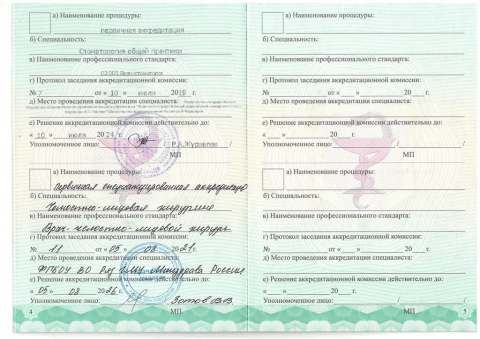 а) Наименование процедуры:
первичная аккредитация
б) Специальность:
Стоматология общей практики
в) Наименование профессионального стандарта:
г) Протокол заседания аккредитационной комиссии:
№ 7 от « 10 » июля 20
д) Место проведения аккредитации специалиста:
е) Решение аккредитационной комиссии действительно до:
« 10 » июля 20
Уполномоченное лицо: / Р.А.Журавлев /
МП
а) Наименование процедуры:
Первичная специализированная аккредитация
б) Специальность:
Челюстно-лицевая хирургия
в) Наименование профессионального стандарта:
Врач-челюстно-лицевой хирург
г) Протокол заседания аккредитационной комиссии:
№ 11 от « 05 » 08 2021г.
д) Место проведения аккредитации специалиста:
ФГБОУ ВО Минздрава России
е) Решение аккредитационной комиссии действительно до:
« 05 » 08 2026г.
Уполномоченное лицо: Зотов В.В.
4 МП
а) Наименование процедуры:
б) Специальность:
в) Наименование профессионального стандарта:
г) Протокол заседания аккредитационной комиссии:
№ от « » 20 г.
д) Место проведения аккредитации специалиста:
е) Решение аккредитационной комиссии действительно до:
« » 20 г.
Уполномоченное лицо: / /
МП
а) Наименование процедуры:
б) Специальность:
в) Наименование профессионального стандарта:
г) Протокол заседания аккредитационной комиссии:
№ от « » 20 г.
д) Место проведения аккредитации специалиста:
е) Решение аккредитационной комиссии действительно до:
« » 20 г.
Уполномоченное лицо: / /
МП 5